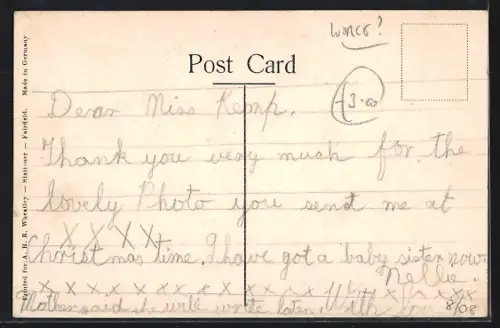 Worcs?
Post Card
3.00
Dear Miss Kemp.
Thank you very much for the
lovely Photo you send me at
X X X X
Christmas time. I have got a baby sister now.
Nellie.
x x x x x x x x x x x x x x x x
Mother said she will write later. With love
8/08
Printed for A. H. R. Wheatley – Stationer – Fairfield. Made in Germany